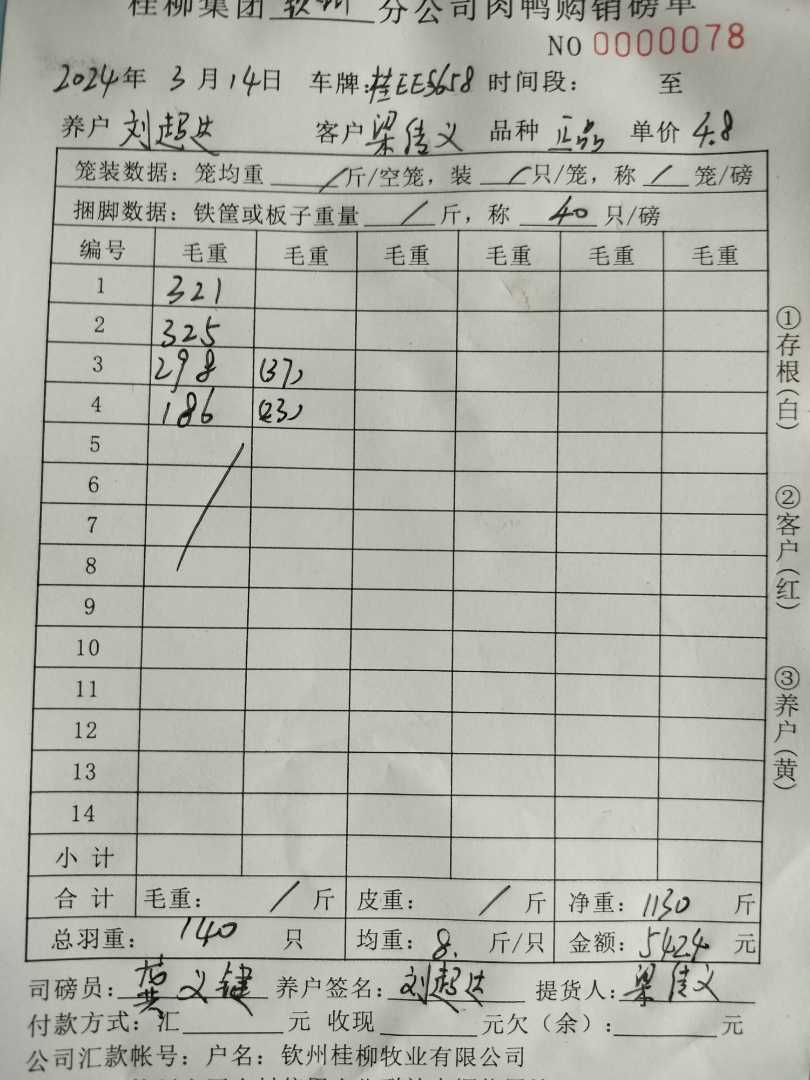 桂柳集团 钦州 分公司肉鸭购销磅单
NO 0000078
2024年 3月14日 车牌:桂EE5658 时间段: 至
养户 刘起达 客户 梁信义 品种 正品 单价 4.8
笼装数据:笼均重 / 斤/空笼,装 / 只/笼,称 / 笼/磅
捆脚数据:铁筐或板子重量 / 斤,称 40 只/磅
编号 毛重 毛重 毛重 毛重 毛重 毛重
1 321
2 325
3 298 (37)
4 186 (23)
5
6
7
8
9
10
11
12
13
14
小计
合计 毛重: / 斤 皮重: / 斤 净重: 1130 斤
总羽重: 140 只 均重: 8. 斤/只 金额: 5424 元
司磅员: 义键 养户签名: 刘起达 提货人: 梁信义
付款方式:汇 元 收现 元欠(余): 元
公司汇款帐号:户名:钦州桂柳牧业有限公司
①存根(白)
②客户(红)
③养户(黄)